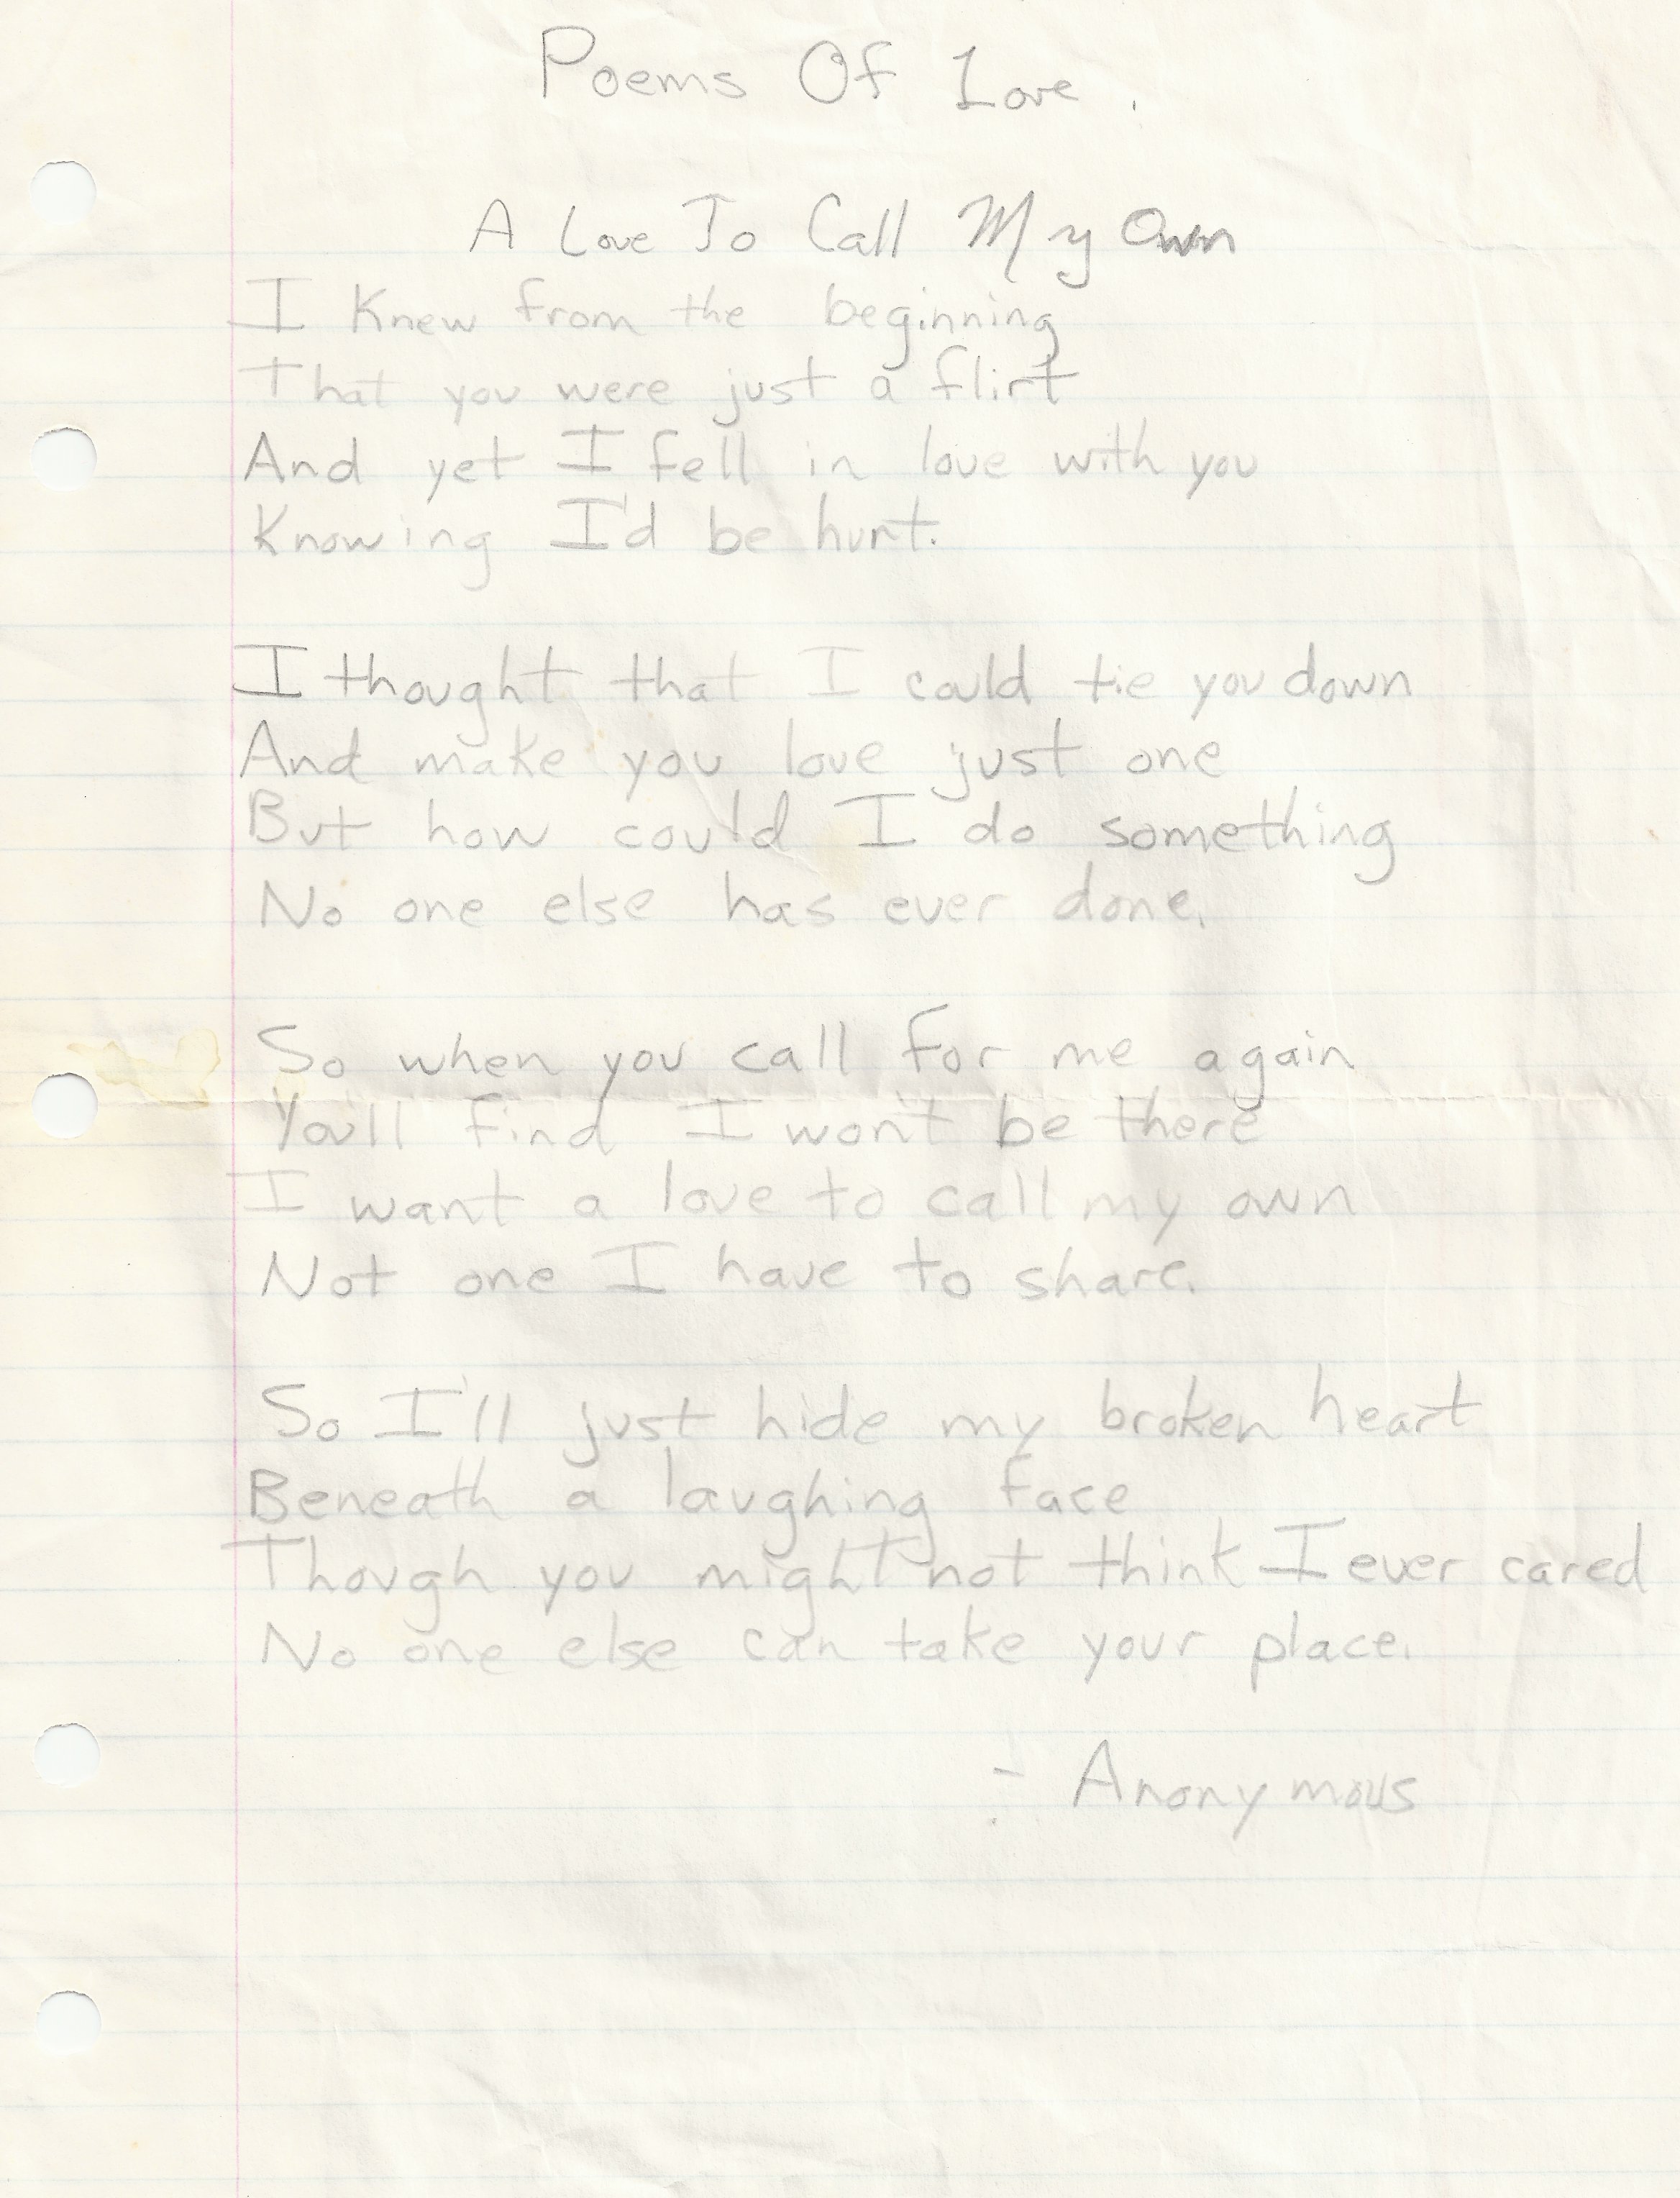 Poems Of Love.
A Love To Call My Own
I Knew from the beginning
That you were just a flirt
And yet I fell in love with you
Knowing I'd be hurt.
I thought that I could tie you down
And make you love just one
But how could I do something
No one else has ever done.
So when you call for me again
You'll find I won't be there
I want a love to call my own
Not one I have to share.
So I'll just hide my broken heart
Beneath a laughing face
Though you might not think I ever cared
No one else can take your place.
- Anonymous